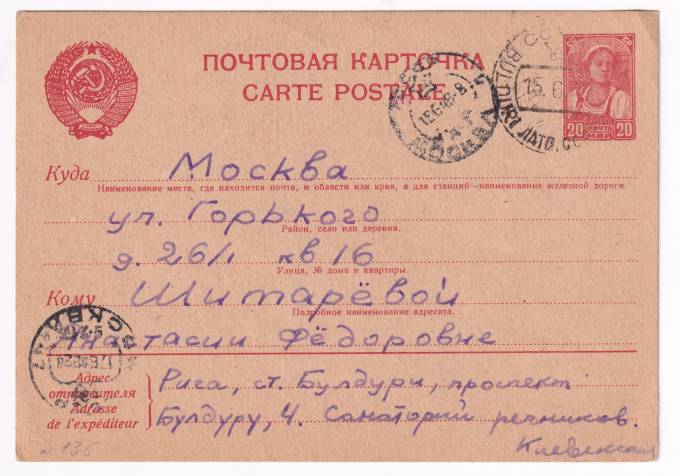 ПОЧТОВАЯ КАРТОЧКА
CARTE POSTALE
20 ПОЧТА 20
КОП.
BULDURI
15.6
ЛАТВ.ССР
МОСКВА
Куда Москва
Наименование места, где находится почта, и области или края, а для станций—наименование железной дороги.
ул. Горького
Район, село или деревня.
д. 26/1 кв 16
Улица, № дома и квартиры.
Кому Шитарёвой
Подробное наименование адресата.
Анастасии Фёдоровне
Адрес отправителя
Adresse de l'expéditeur
Рига, ст. Булдури, проспект
Булдуру, 4. Санаторий речников.
Клевенская
N 135